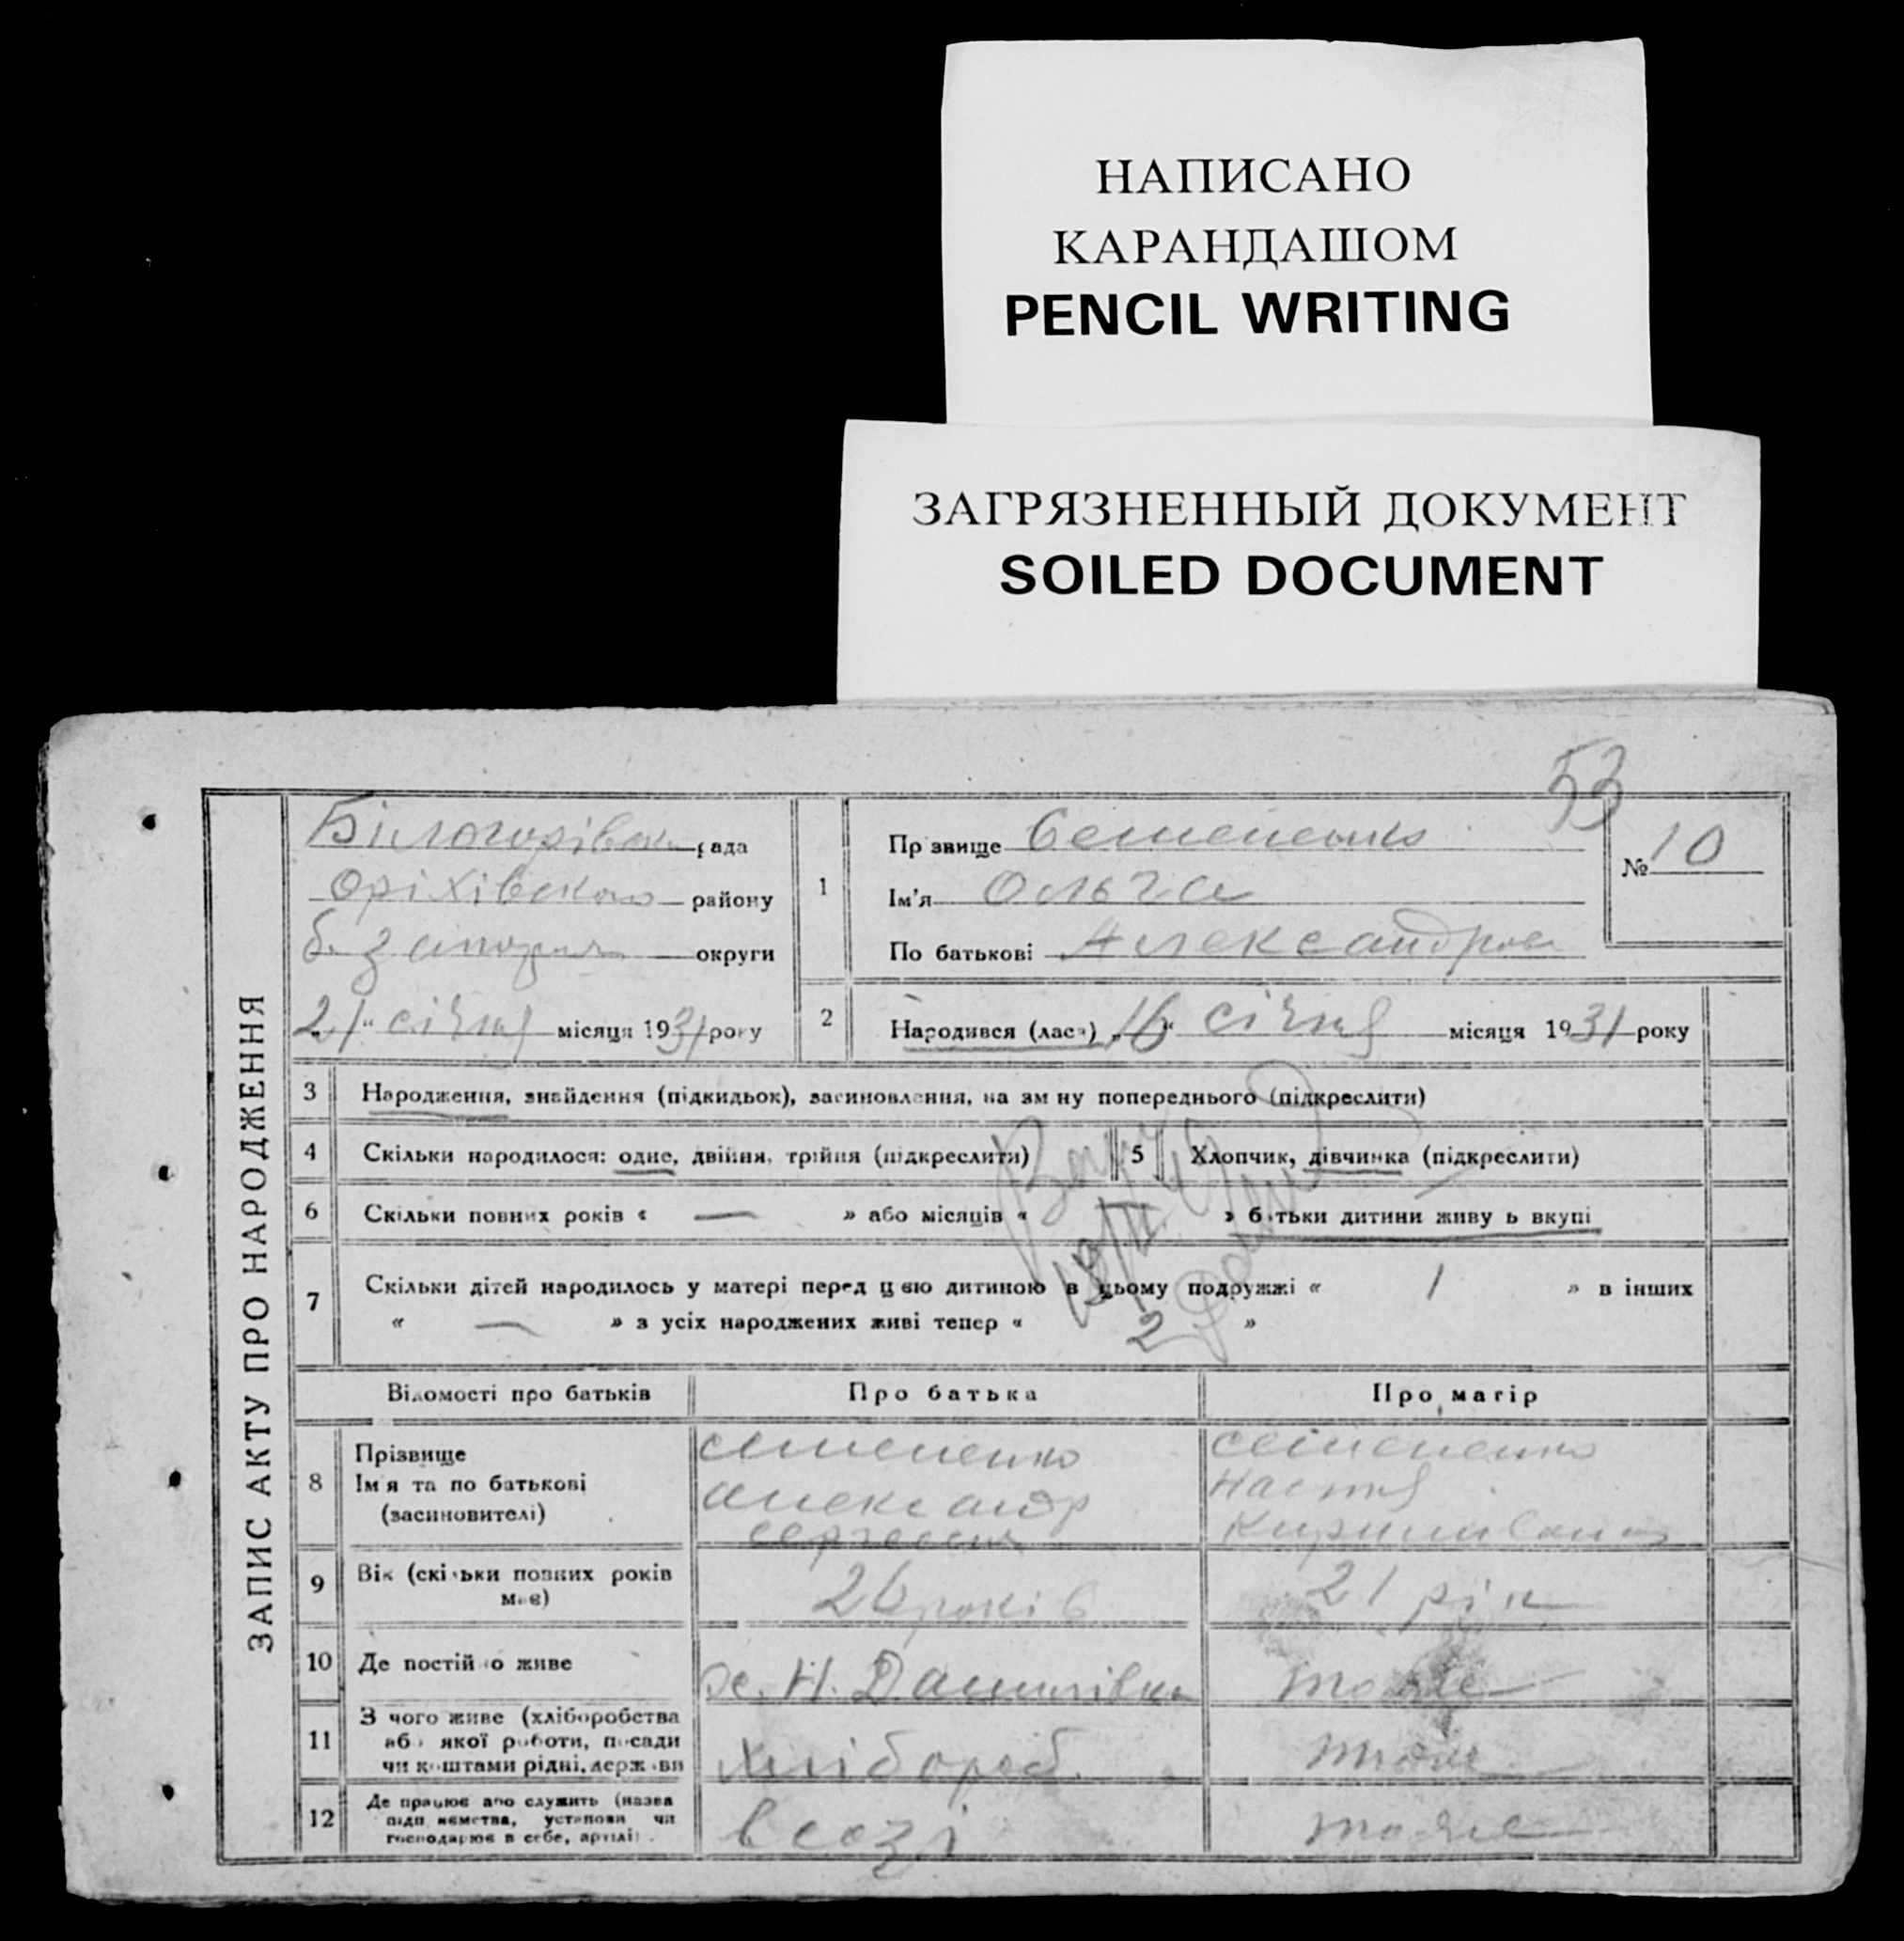 НАПИСАНО
КАРАНДАШОМ
PENCIL WRITING
ЗАГРЯЗНЕННЫЙ ДОКУМЕНТ
SOILED DOCUMENT
53
ЗАПИС АКТУ ПРО НАРОДЖЕННЯ
рада
Оріхівского району
округи
21 січня місяця 1931 року
1
Прізвище Семененко
Ім'я Ольга
По батькові Александров
№ 10
2
Народився (лася) „16“ січня місяця 1931 року
3 Народження, знайдення (підкидьок), засиновлення, на зміну попереднього (підкреслити)
4 Скільки народилося: одне, двійня, трійня (підкреслити)
5 Хлопчик, дівчинка (підкреслити)
6 Скільки повних років « — » або місяців « » батьки дитини живуть вкупі
7 Скільки дітей народилось у матері перед цією дитиною в цьому подружжі « 1 » в інших
« — » з усіх народжених живі тепер « 2 »
Відомості про батьків Про батька Про матір
8 Прізвище
Ім'я та по батькові
(засиновителі)
Семененко
Александр
Семененко
Настя
9 Вік (скільки повних років має)
26 років
21 рік
10 Де постійно живе
Н. Данилівка
тоже
11 З чого живе (хліборобства
або якої роботи, посади
чи коштами рідні, держави
хлібороб
тоже
12 Де працює або служить (назва
підприємства, установи чи
господарює в себе, артілі)
в созі
тоже